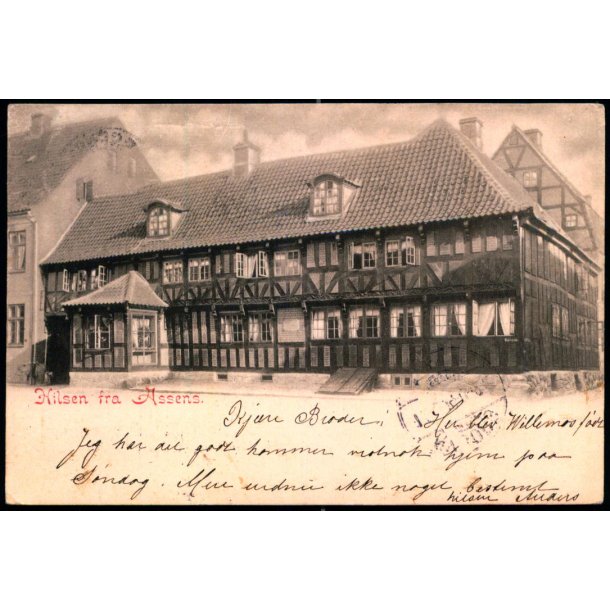 Hilsen fra Assens.
Kjære Broder. Her blev Willemos født
Jeg har det godt kommer vistnok hjem paa
Søndag. Men endnu ikke noget bestemt
hilsen Anders